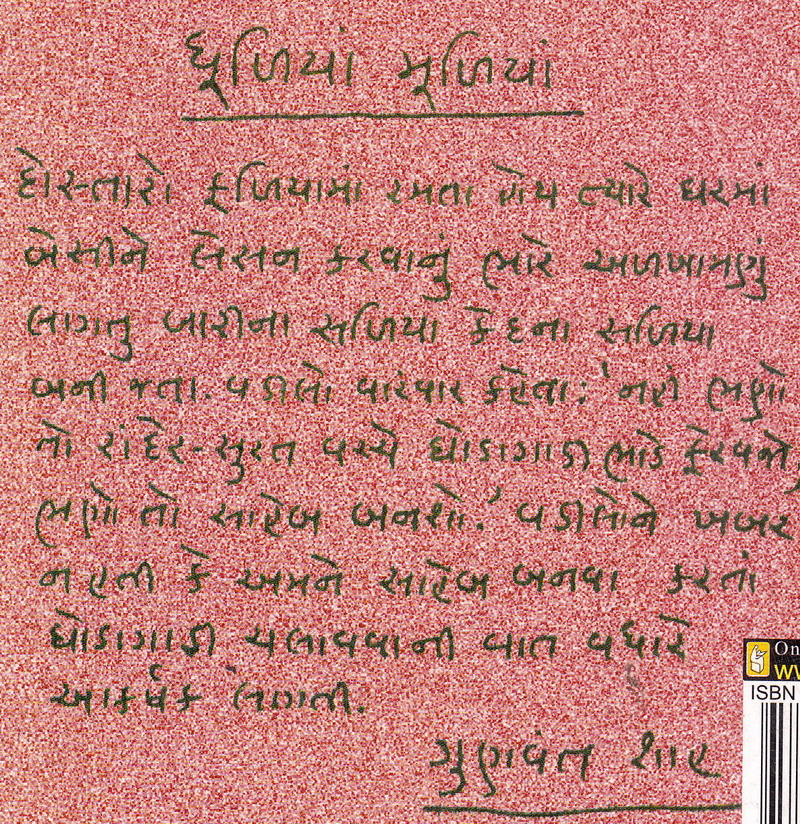 ધૂળિયાં મૂળિયાં
દોસ્તારો ફળિયામાં રમતા હોય ત્યારે ઘરમાં
બેસીને લેસન કરવાનું ભારે અળખામણું
લાગતુ બારીના સળિયા કેદના સળિયા
બની જતા. વડીલો વારંવાર કહેતા: 'નહીં ભણો
તો રાંદેર-સુરત વચ્ચે ઘોડાગાડી ભાડે ફેરવજો,
ભણો તો સાહેબ બનશો.' વડીલોને ખબર
નહતી કે અમને સાહેબ બનવા કરતાં
ઘોડાગાડી ચલાવવાની વાત વધારે
આકર્ષક લાગતી.
ગુણવંત શાહ
On
WW
ISBN